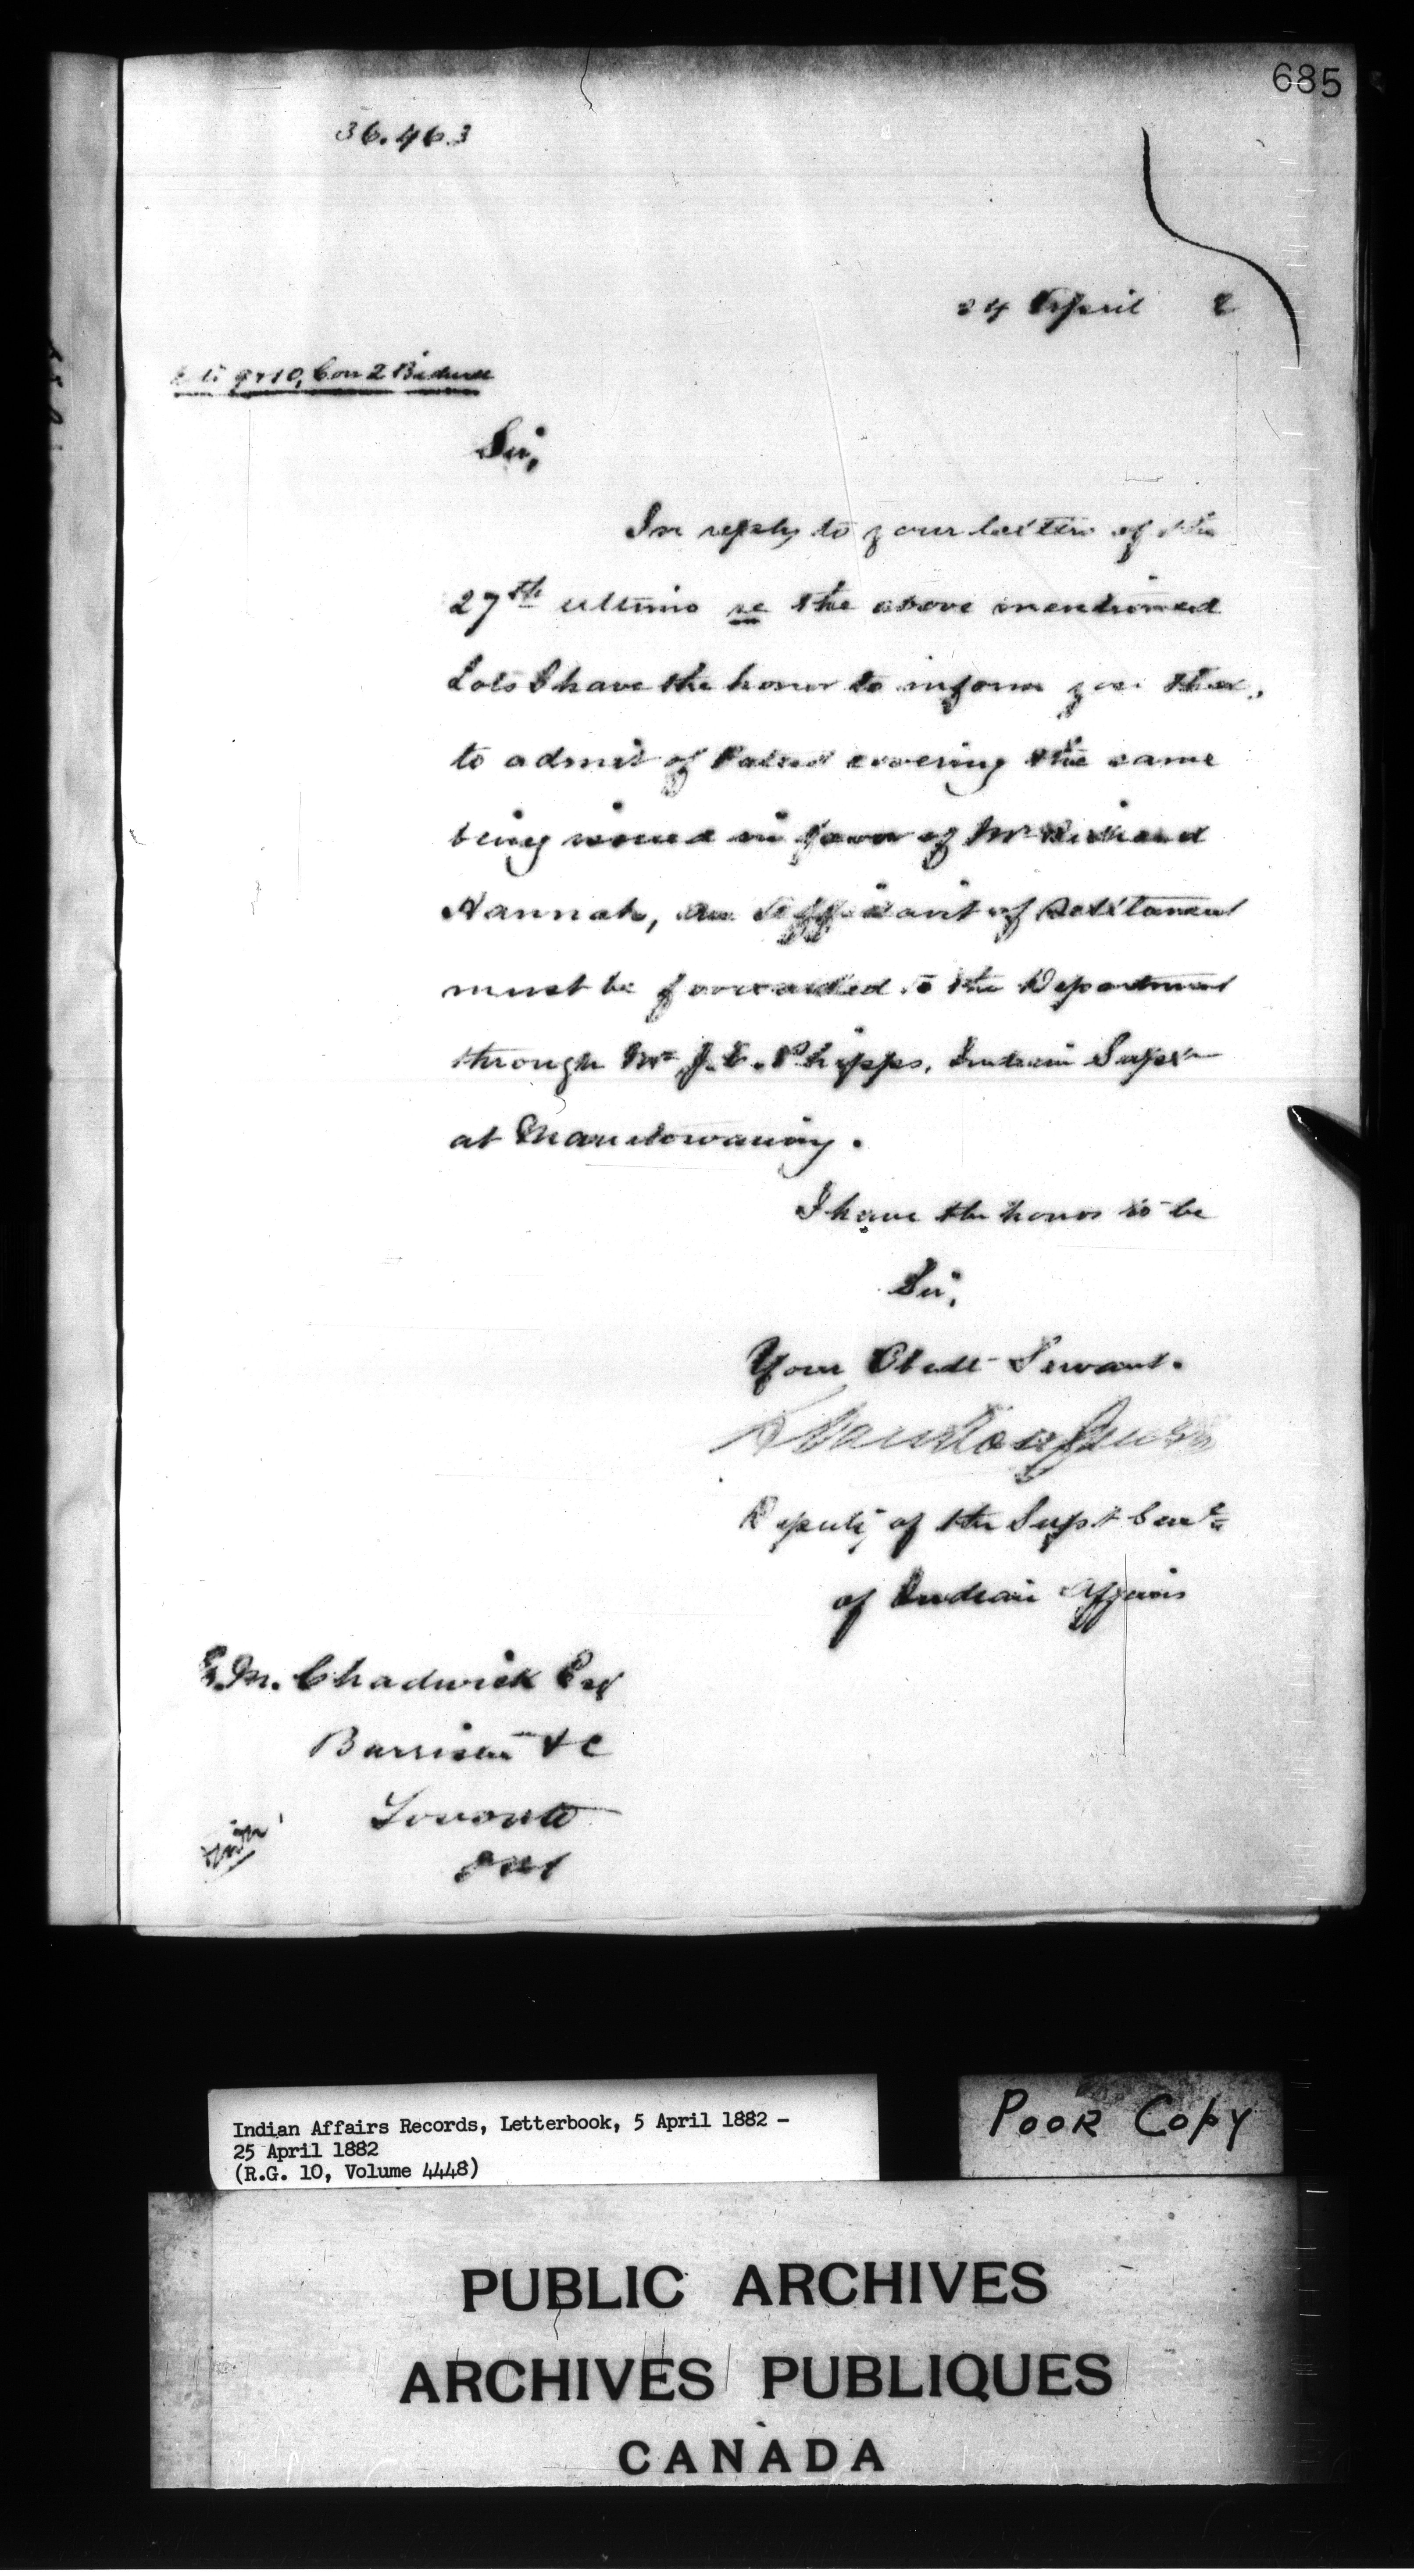 685
36.463
24 April 2
Lots 9 & 10, Con 2 Bidwell
Sir,
In reply to your letter of the
27th ultimo re the above mentioned
Lots I have the honor to inform you that,
to admit of Patent covering the same
being issued in favor of Mr Richard
Hannah, an Affidavit of Settlement
must be forwarded to the Department
through Mr J.C. Phipps, Indian Supt
at Manitowaning.
I have the honor to be
Sir,
Your Obedt Servant.
L Vankoughnet
Deputy of the Supt Genl
of Indian Affairs
E.M. Chadwick Esq
Barrister &c
Toronto
Ont
Indian Affairs Records, Letterbook, 5 April 1882 –
25 April 1882
(R.G. 10, Volume 4448)
POOR COPY
PUBLIC ARCHIVES
ARCHIVES PUBLIQUES
CANADA